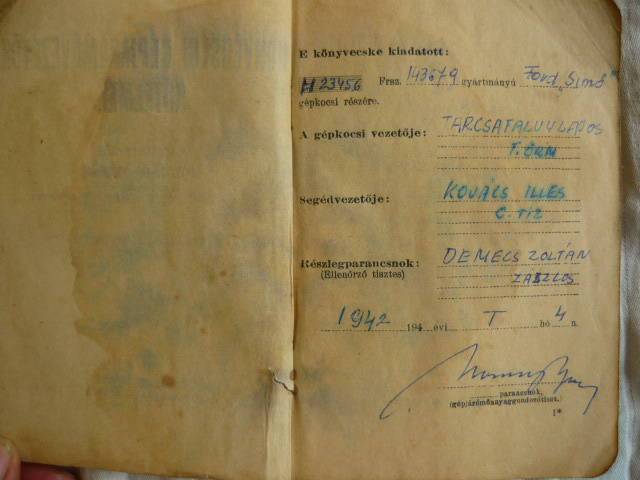 E könyvecske kiadatott:
H 23456 Frsz. 143679 gyártmányú Ford „Sima"
gépkocsi részére.
A gépkocsi vezetője: TARCSAFALVY LAJOS
T. ŐRM
Segédvezetője: KOVÁCS ILLES
C. TIZ
Részlegparancsnok: DEMECS ZOLTÁN
(Ellenőrző tisztes) ZÁSZLÓS
1942 194 évi T hó 4 n.
parancsnok,
(gépjáróműanyaggondozótiszt.)
1*